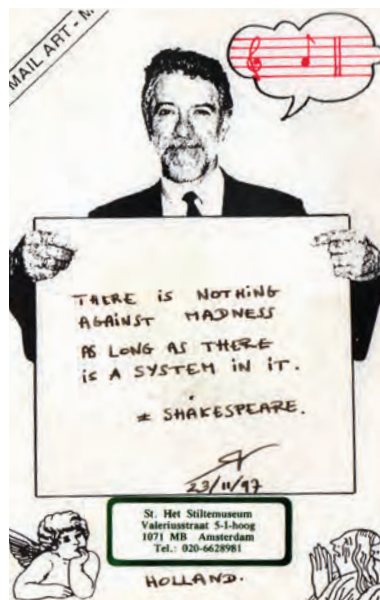 MAIL ART - M
THERE IS NOTHING
AGAINST MADNESS
AS LONG AS THERE
IS A SYSTEM IN IT.
± SHAKESPEARE.
23/11/97
St. Het Stiltemuseum
Valeriusstraat 5-I-hoog
1071 MB Amsterdam
Tel.: 020-6628981
HOLLAND.